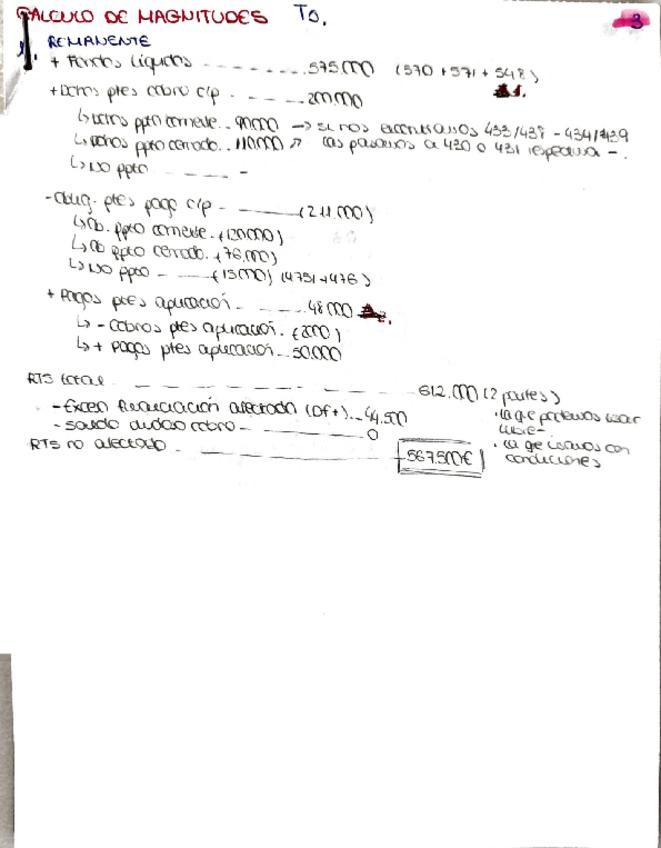 CALCULO DE MAGNITUDES TO.
3
1. REMANENTE
+ Fondos líquidos ------- 575.000 (570 + 571 + 548)
+ Dchos ptes cobro c/p. ---- 200.000 1.
↳ Dchos ppto corriente.. 90.000 → si nos encontramos 433/438 - 434/439
↳ Dchos ppto cerrado.. 110.000 ↗ las pasamos a 430 o 431 respectiva -.
↳ No ppto ---- -
- Oblig. ptes pago c/p - ---- (211.000)
↳ Ob. ppto corriente. (120.000)
↳ Ob ppto cerrado. (76.000)
↳ No ppto - ---- (15.000) (4751+476)
+ Pagos ptes aplicación. ---- 48.000 2.
↳ - Cobros ptes aplicación. (2000)
↳ + Pagos ptes aplicación.. 50.000
RTS total ---- 612.000 (2 partes)
- Exceso financiación afectada (Df+).. 44.500 · la q e podemos usar
- Saldo dudoso cobro - ---- 0 libre-
RTS no afectado - ---- 567.500€ · la q e usamos con
condiciones